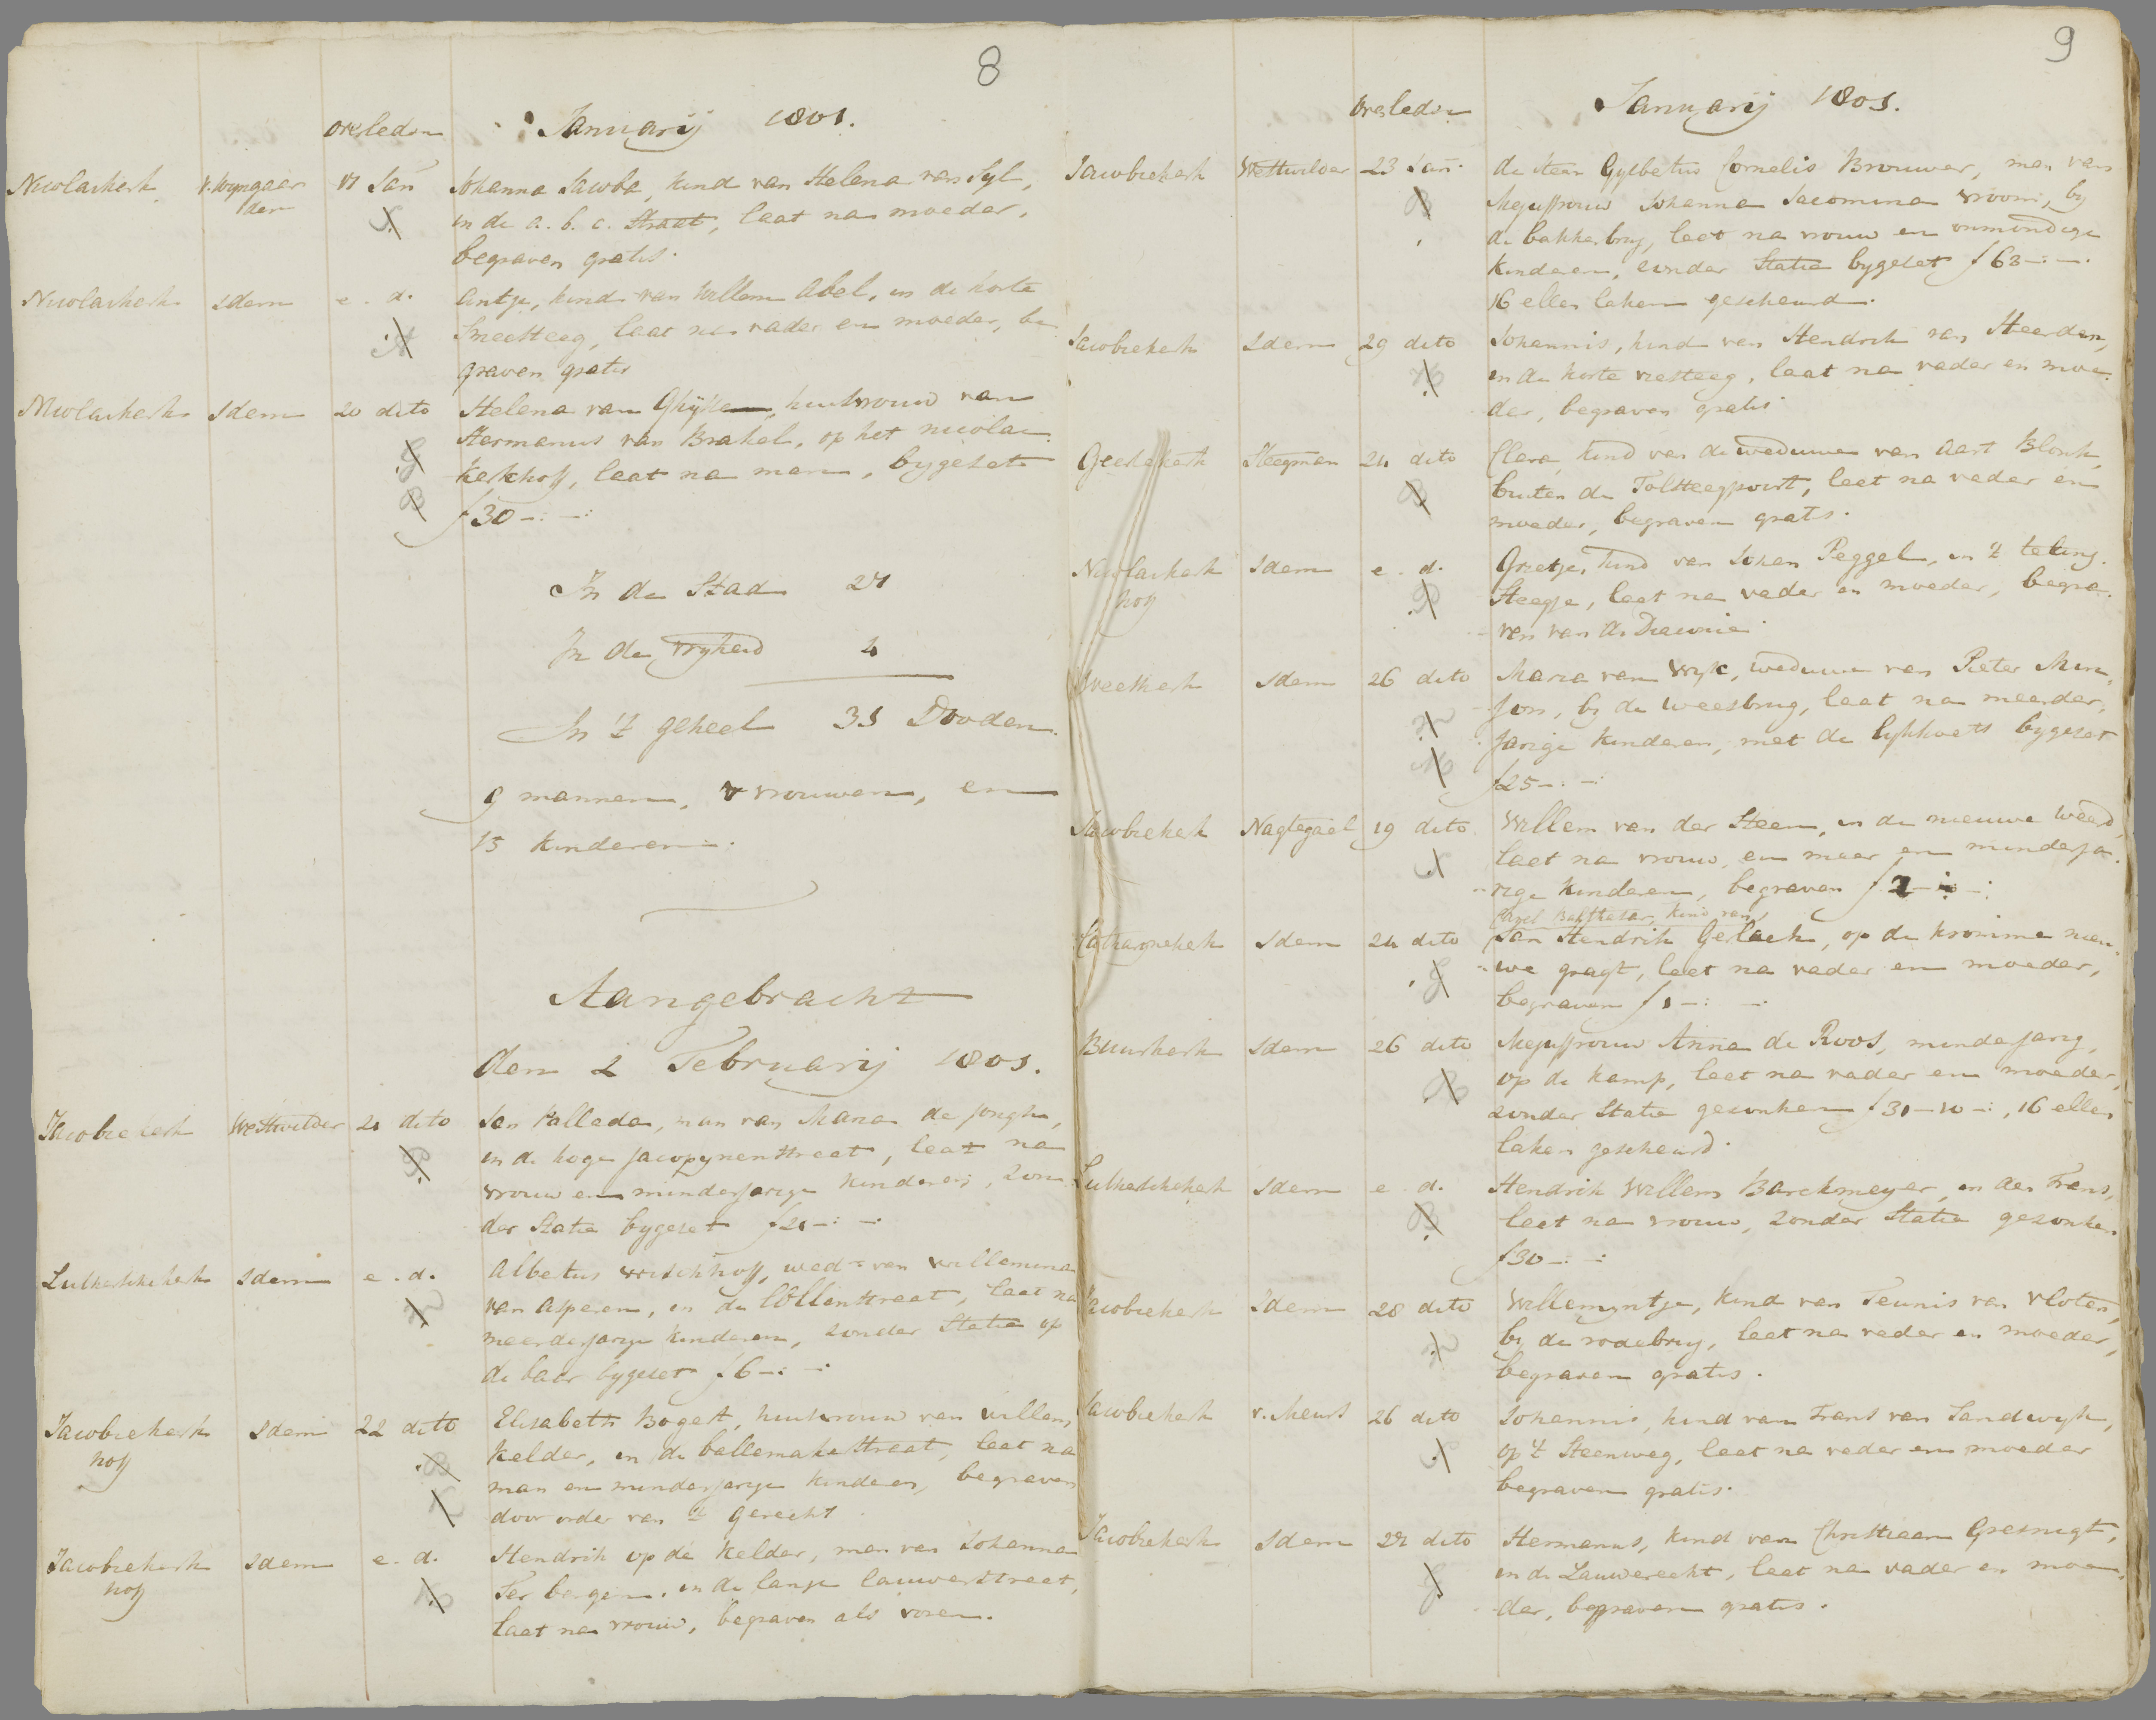 8
overleden Januarij 1801.
Nicolaikerk v. Wyngaar 17 Jan Johanna Jacoba, kind van Helena van Syl,
den in de a. b. c. Straat, laat na moeder,
begraven gratis.
Nicolaikerk Idem e. d. Antje, kind van Willem Abel, in de korte
Smeesteeg, laat na vader en moeder, be
graven gratis
Nicolaikerk Idem 20 dito Helena van, huisvrouw van
Hermanus van Brakel, op het nicolai
kerkhoff, laat na man, bygeset
f30-:-:
In de Stad 27
In de vryheid 4
In 't geheel 31 Dooden.
9 mannen, 7 vrouwen, en
15 kinderen.
Aangebracht
den 2 Februarij 1801.
Jacobiekerk Westwilder 21 dito Jan Kalleda, man van Maria de Jongh,
in de hoge Jacopynenstraat, laat na
vrouw en minderjarige kinderen, zon
der Statie bygeset f21-:-:
Luthersche kerk Idem e. d. Albertus Vrischhoff, wed.r van Willemina
van Asperen, in de Löllenstraat, laat na
meerderjarige kinderen, zonder Statie op
de baar bygeset f6-:-:
Jacobiekerk Idem 22 dito Elisabeth Bogert, huisvrouw van Willem
hoff Kelder, in de ballemakerstraat, laat na
man en minderjarige kinderen, begraven
door order van 't Gerecht
Jacobiekerk Idem e. d. Hendrik op de Kelder, man van Johanna
hoff Ter bergen, in de lange lauwerstraat,
laat na vrouw, begraven als voren.
9
overleden Januarij 1801.
Jacobiekerk Westwilder 23 Jan. de Heer Gysbertus Cornelis Brouwer, man van
Mejuffrouw Johanna Jacomina Vroom, by
de bakkerbrug, laat na vrouw en onmondige
kinderen, zonder Statie bygeset f63-:-:
16 ellen laken gescheurd.
Jacobiekerk Idem 29 dito Johannis, kind van Hendrik van Heerden,
in de korte viesteeg, laat na vader en moe
der, begraven gratis
Geertekerk Steegman 24 dito Clara, kind van de weduwe van Aart Blonk,
buiten de Tolsteegpoort, laat na vader en
moeder, begraven gratis.
Nicolaikerk Idem e. d. Grietje, kind van Johan Peggel, in 't teling
hoff Steegje, laat na vader en moeder, begra
ven van de Diaconie
Idem 26 dito Maria van Wyk, weduwe van Pieter Min
jon, by de Weesbrug, laat na meerder
jarige kinderen, met de lykkoets bygeset
f25-:-:
Jacobiekerk Nagtegael 19 dito Willem van der Steen, in de nieuwe Weerd,
laat na vrouw, en meer en minderja
rige kinderen, begraven f2-:-:
Carel Balthasar, kind van
Catharynekerk Idem 24 dito Jan Hendrik Gerlach, op de kromme nieu
we gragt, laat na vader en moeder,
begraven f1-:-:
Buurkerk Idem 26 dito Mejuffrouw Anna de Roos, minderjarig,
op de kamp, laat na vader en moeder,
zonder Statie gesonken f31-10-:, 16 ellen
laken gescheurd.
Lutherschekerk Idem e. d. Hendrik Willem Barckmeyer, in den Trans,
laat na vrouw, zonder Statie gesonken
f30-:-:
Jacobiekerk Idem 28 dito Willemyntje, kind van Teunis van Vloten,
by de rodebrug, laat na vader en moeder,
begraven gratis.
Jacobiekerk v. Meurs 26 dito Johannis, kind van Frans van Sandwyk,
op 't Steenweg, laat na vader en moeder
begraven gratis.
Jacobiekerk Idem 27 dito Hermanus, kind van Christiaan Gresnigt,
in de Lauwerecht, laat na vader en moe
der, begraven gratis.